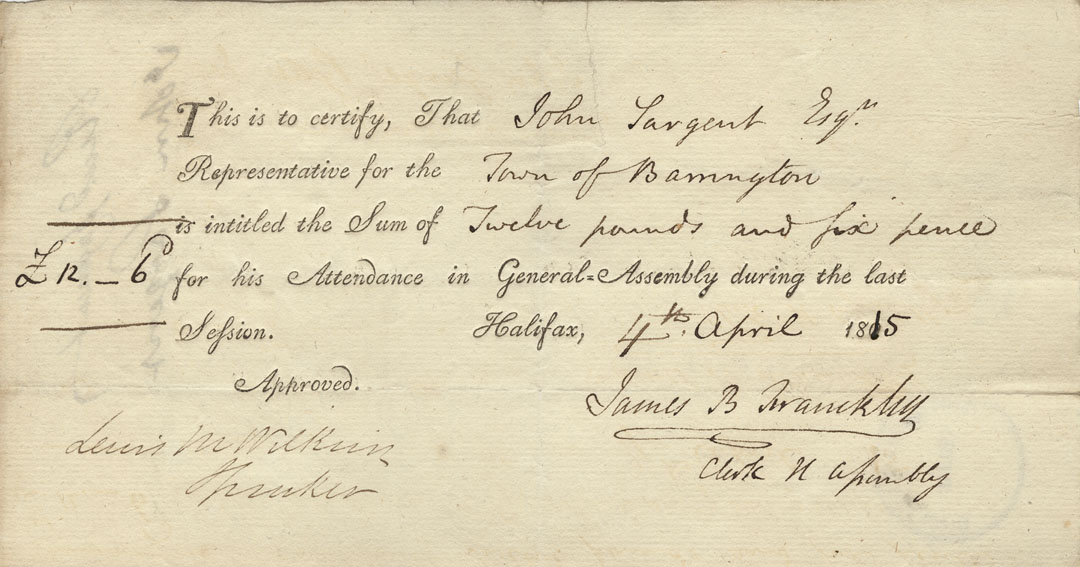 This is to certify, That John Sargent Esqr.
Representative for the Town of Barrington
is intitled the Sum of Twelve pounds and six pence
£12. – 6d for his Attendance in General=Assembly during the last
Seſsion. Halifax, 4th. April 1815
Approved.
James B Franckly
Lewis M Wilkins
Speaker
Clerk H Aſsembly